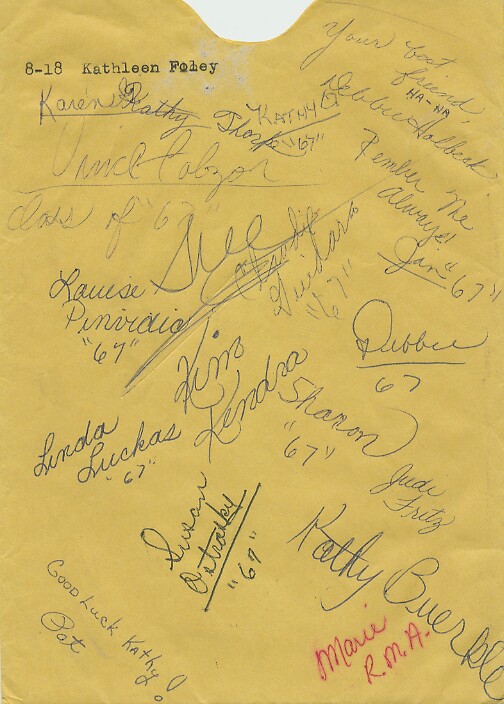 8-18 Kathleen Foley
Your best
friend
HA-HA
Debbie Holbeck
Karen
Kathy
Thorpe
"67"
KATHY
Vince
Class of "67"
Remember Me
Always!
Jan "67"
Sue
Claudie
Guidara
"67"
Louise
Pinvidic
"67"
Debbie
67
Kim
Kendra
Sharon
"67"
Linda
Luckas
"67"
Judi
Fritz
Susan
Ostrosky
"69"
Kathy Buerkle
GOOD LUCK KATHY!
Pat
Marie
R.M.A.